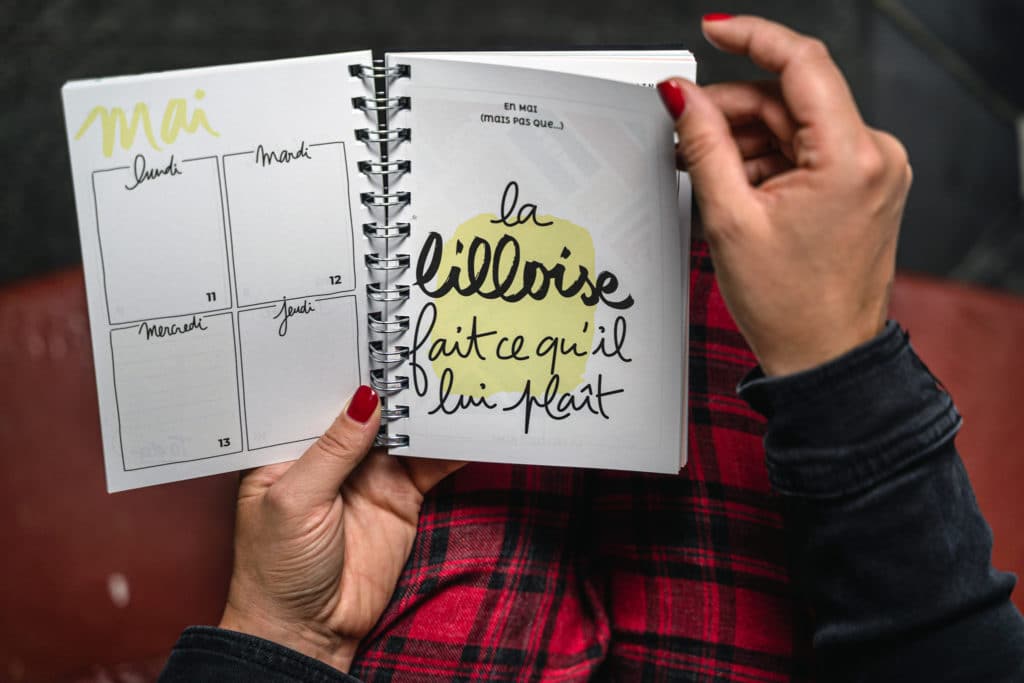 mai
lundi
mardi
11
12
mercredi
jeudi
13
En mai
(mais pas que...)
la
lilloise
fait ce qu'il
lui plaît